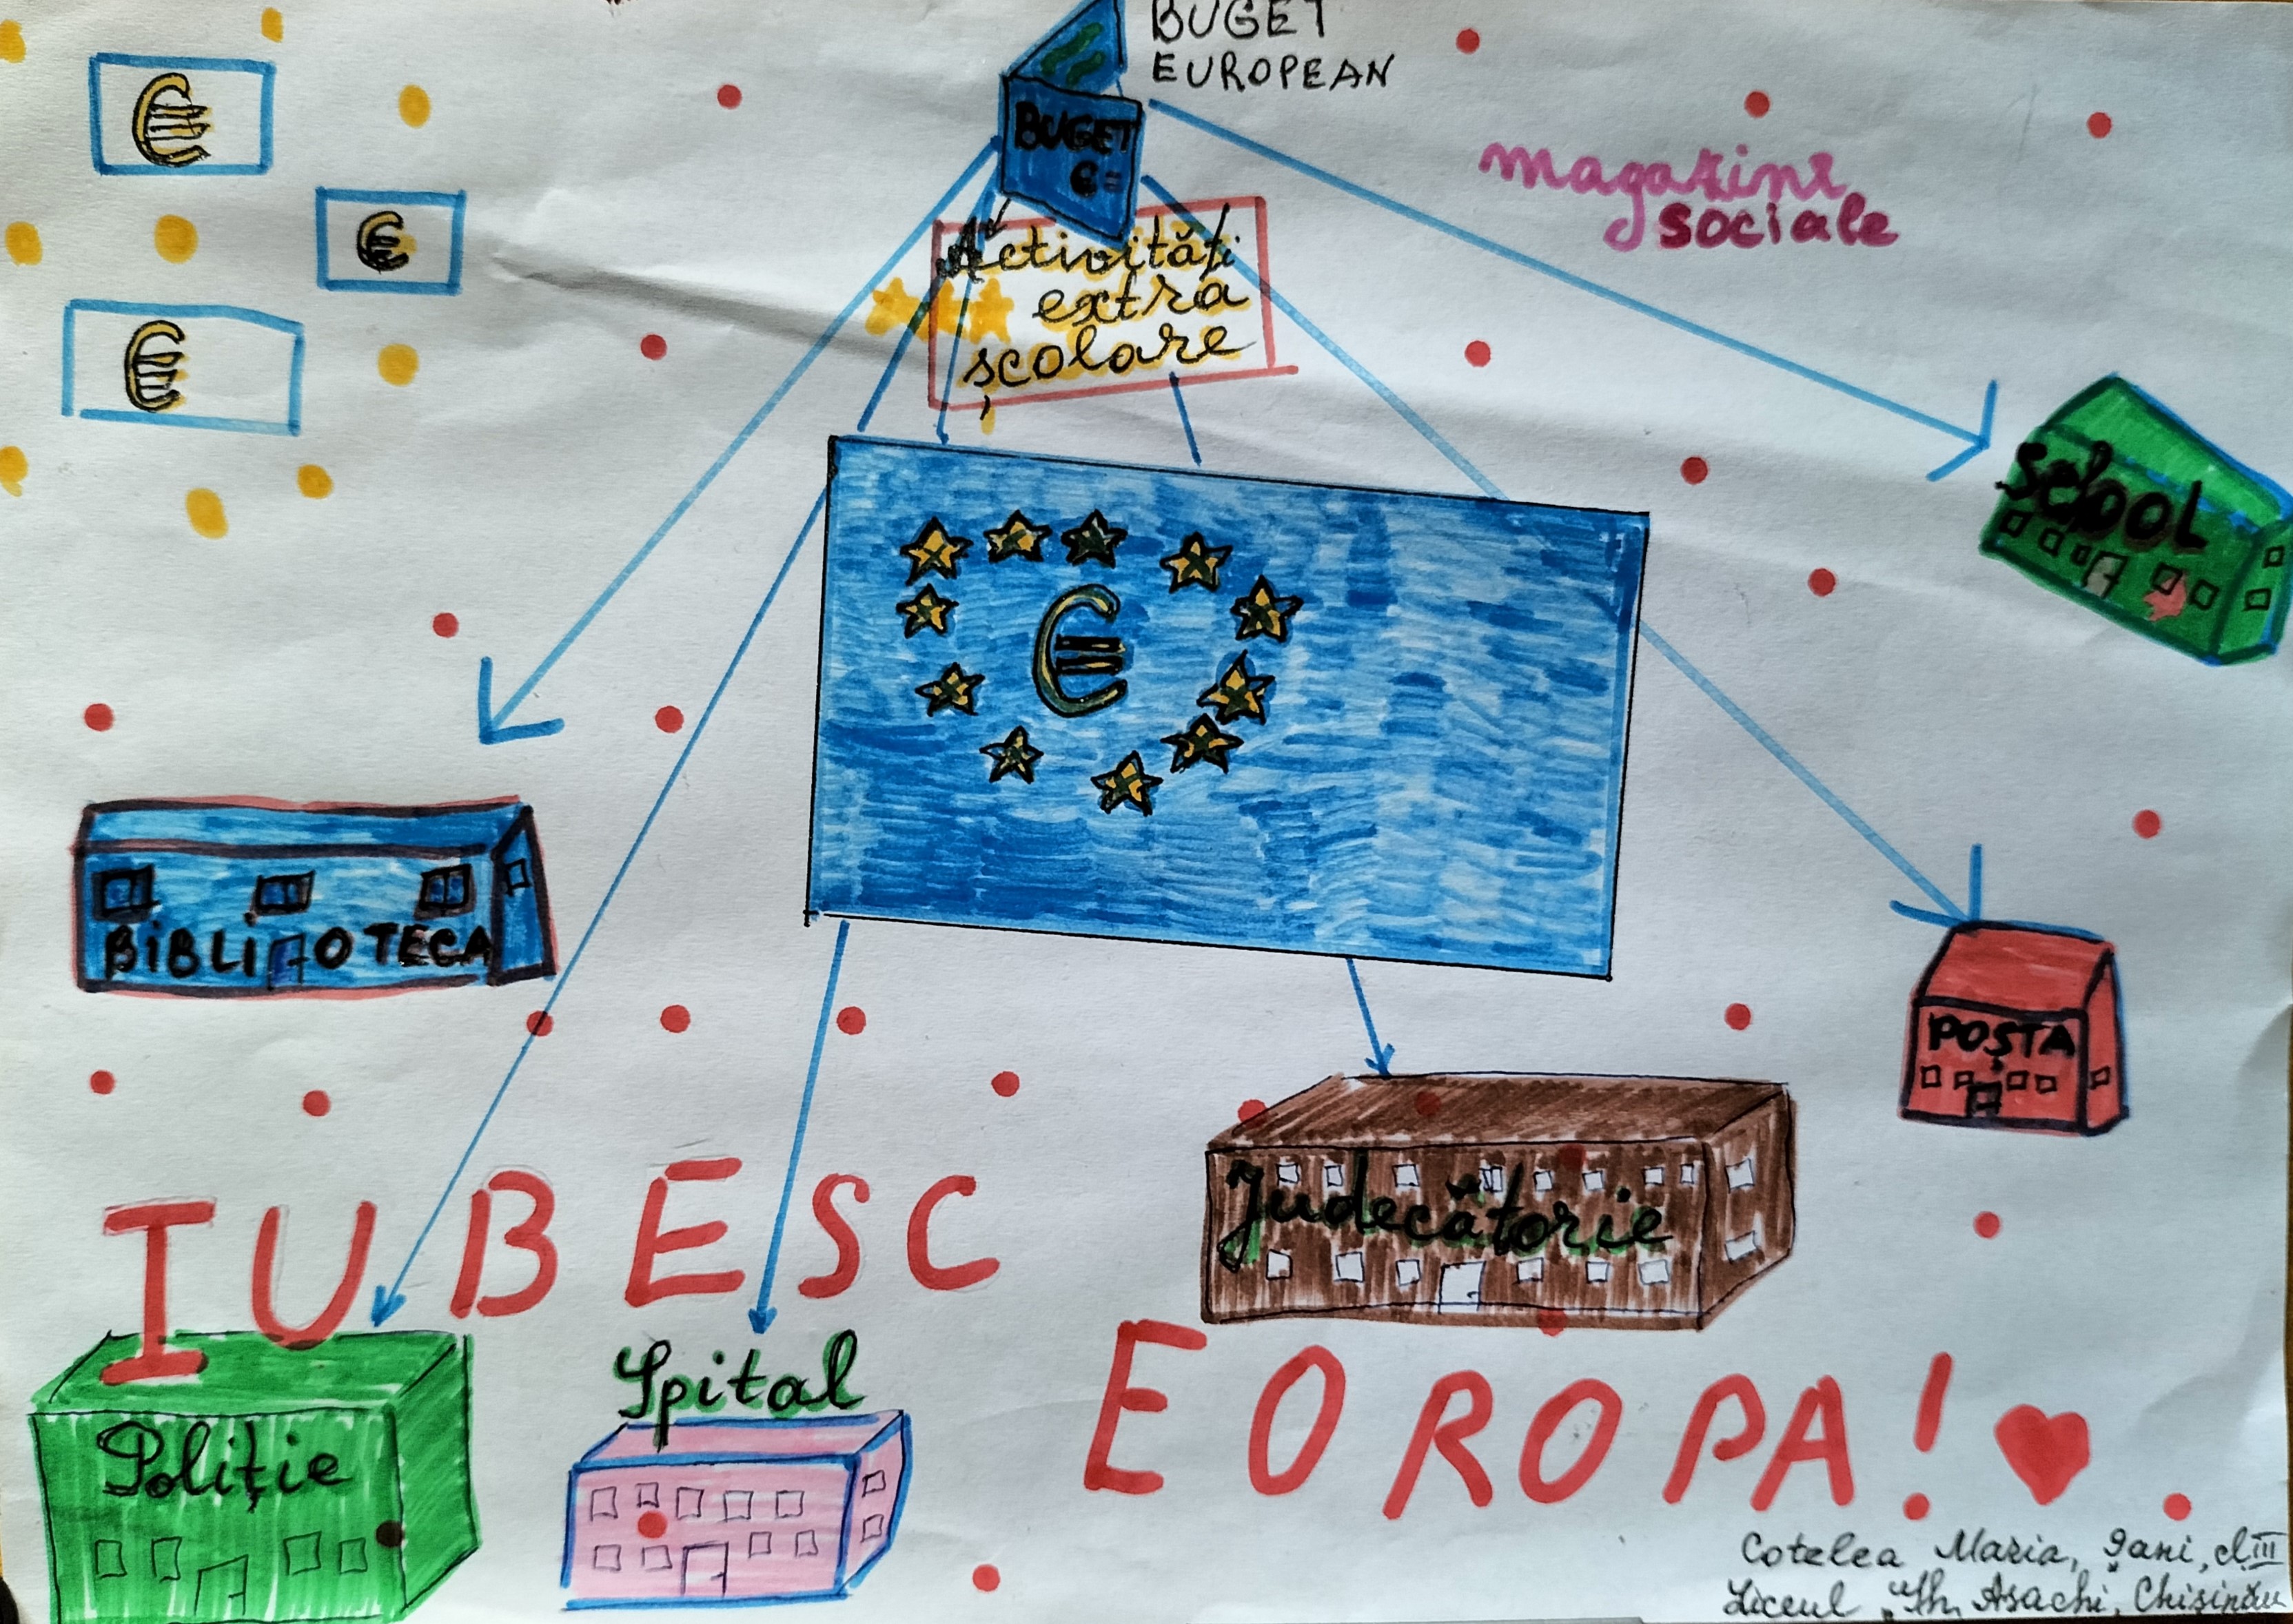 BUGET
EUROPEAN
€
BUGET
€=
magazine
sociale
€
Activități
extra
școlare
€
School
€
BIBLIOTECA
POȘTA
Judecătorie
IUBESC
Spital
EOROPA!
Poliție
Cotelea Maria, 9 ani, cl III
Liceul „Gh. Asachi, Chișinău